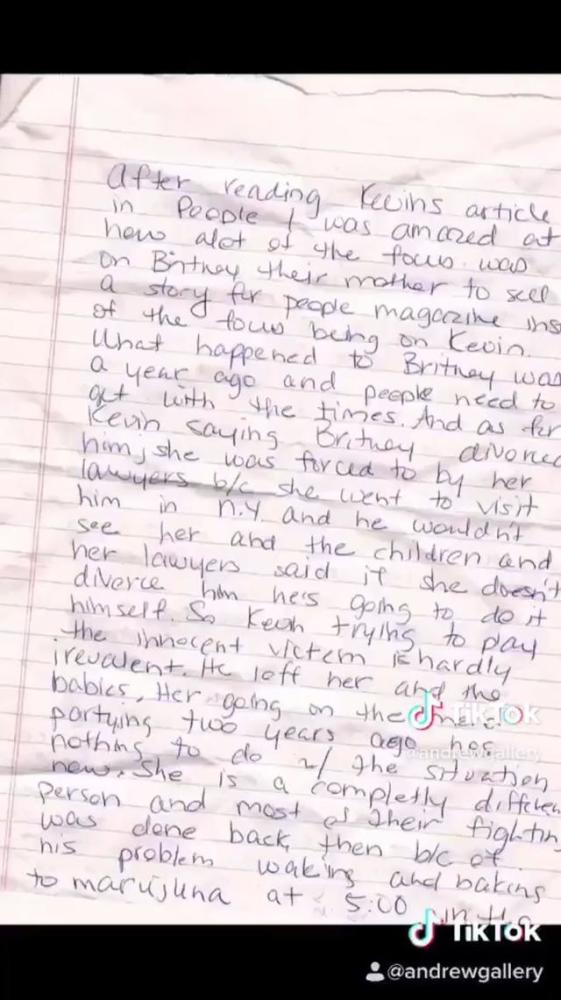 After reading Kevins article
in People I was amazed at
how alot of the focus was
on Britney their mother to sell
a story for people magazine ins
of the focus being on Kevin.
What happened to Britney was
a year ago and people need to
get with the times. And as for
Kevin saying Britney divorced
him, she was forced to by her
lawyers b/c she went to visit
him in n.y. and he wouldn't
see her and the children and
her lawyers said if she doesn't
divorce him he's going to do it
himself. So Kevin trying to play
the innocent victem is hardly
irevalent. He left her and the
babies. Her going on the there
partying two years ago has
nothing to do w/ the situation
now. She is a completly differen
person and most of their fightin
was done back then b/c of
his problem waking and baking
to marijuna at 5:00 in the
TikTok
@andrewgallery
TikTok
@andrewgallery